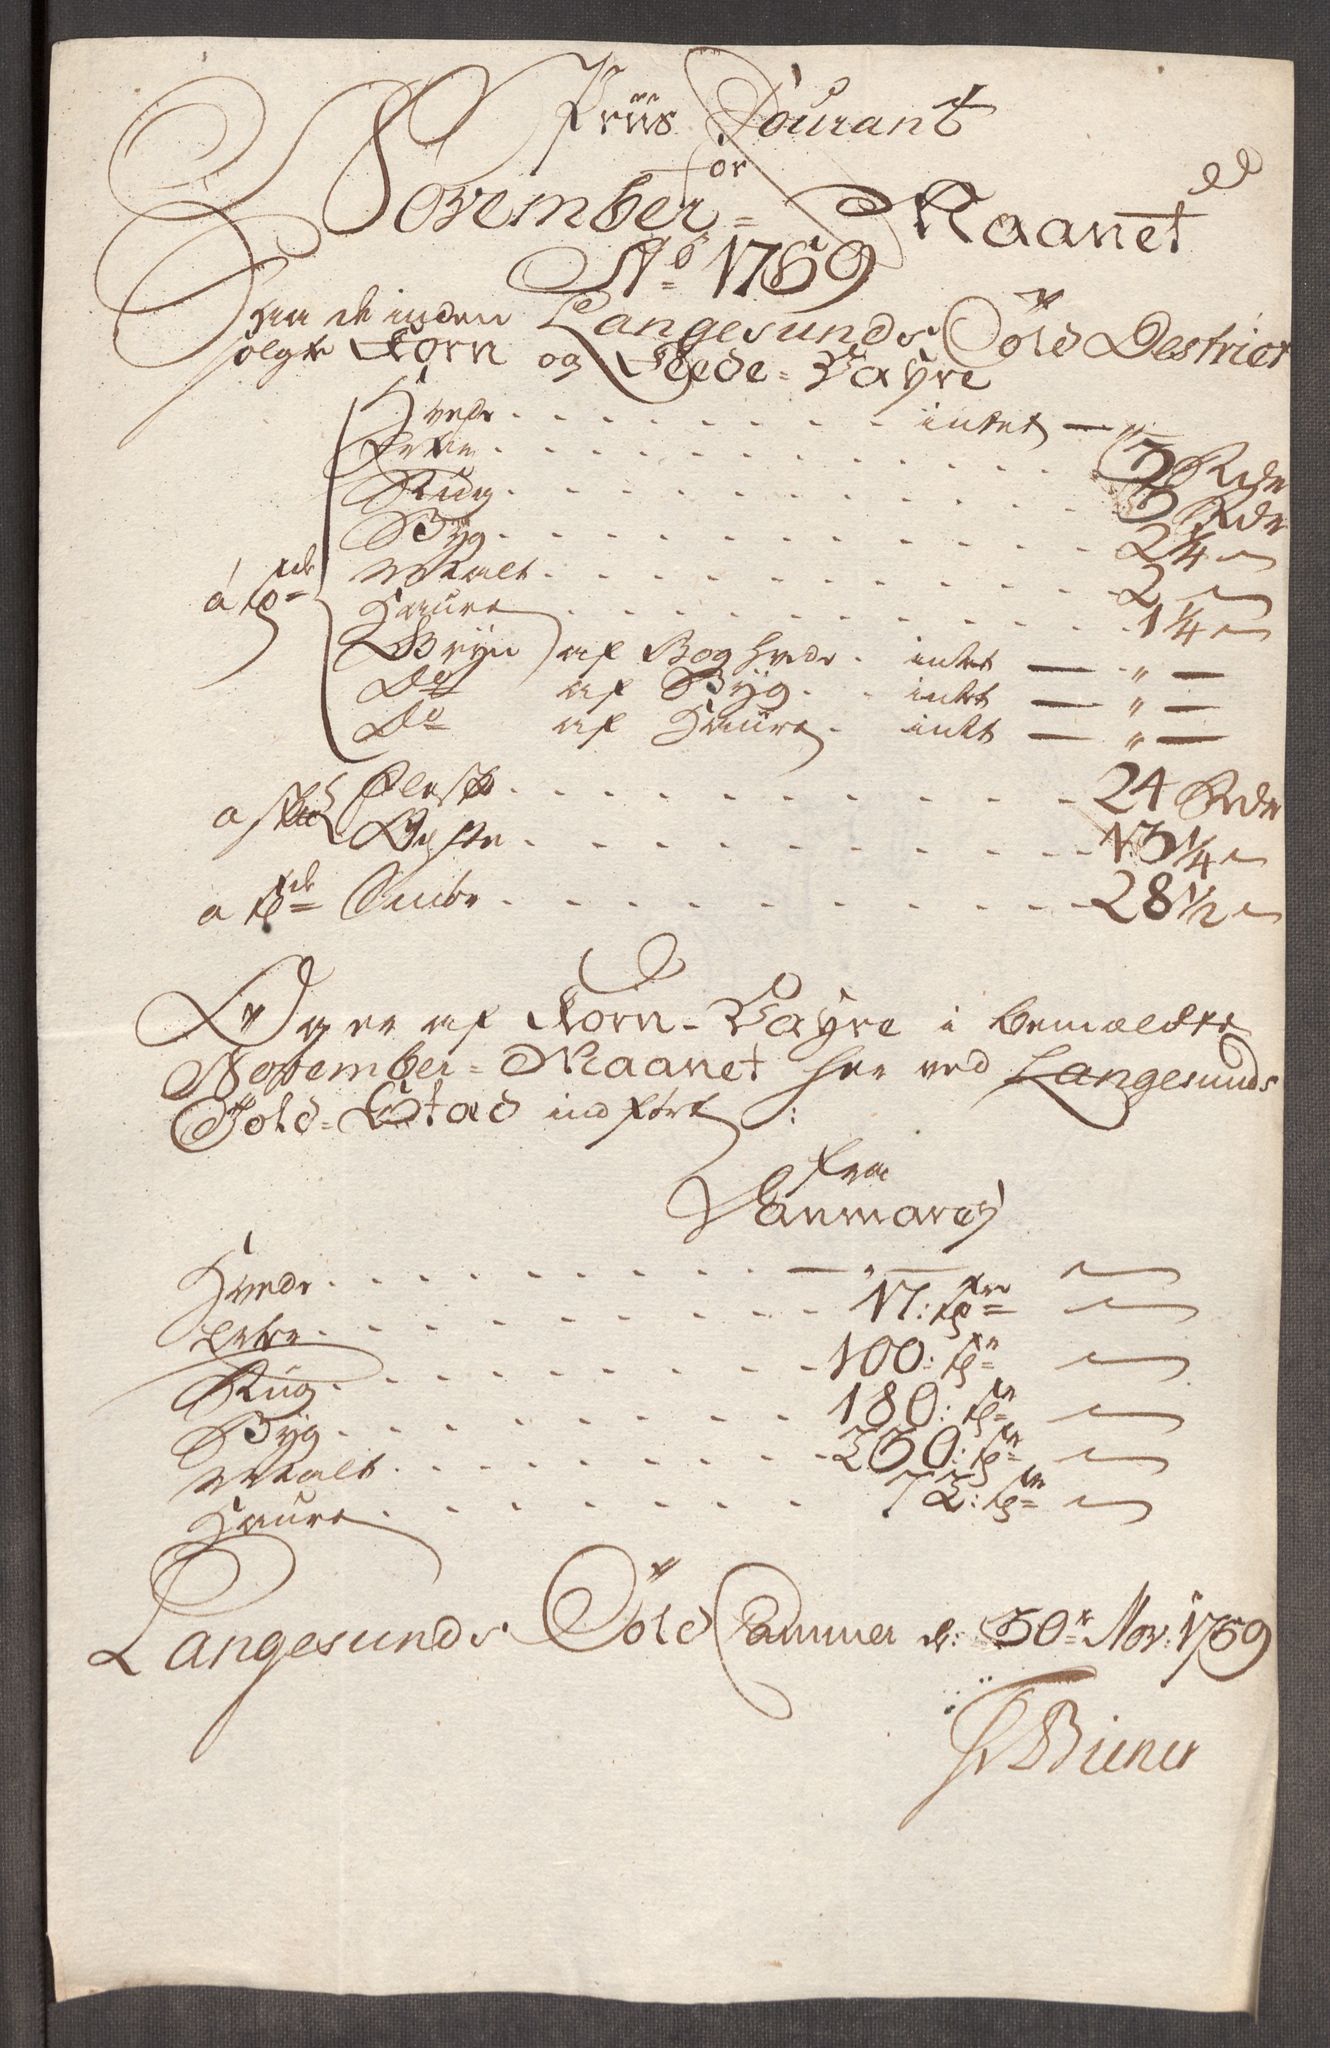 Priis Courant
for
November = Maanet
Ao 1769
Paa de inden Langesunds Told Destrict
solgte Korn og Fede = Vahre
Hvede . . . intet — "
Erter . . . 3 Rdr
Rug . . . 3 Rdr
Byg . . . 2 1/4
Malt . . . 2
á Tde Haure . . . 1 1/4
Gryn af Boghvede . intet — " —
Do af Byg . intet — " —
Do af Haure . intet — " —
Flesk . . . 24 Rdr
a
Oxe . . . 13 1/4
a Tde Smør . . . 28 1/2
Og er af Korn = Vahre i bemældte
November = Maanet her ved Langesunds
Told = Stad indført :
fra
Danmarch
Hvede . . . — " —
Erter . . . 17 : Tdr
Rug . . . 100 : Tdr
Byg . . . 180 : Tdr
Malt . . . 230 : Tdr
Haure . . . 72 : Tdr
Langesunds Told Cammer d: 30te Nov: 1769
Biener